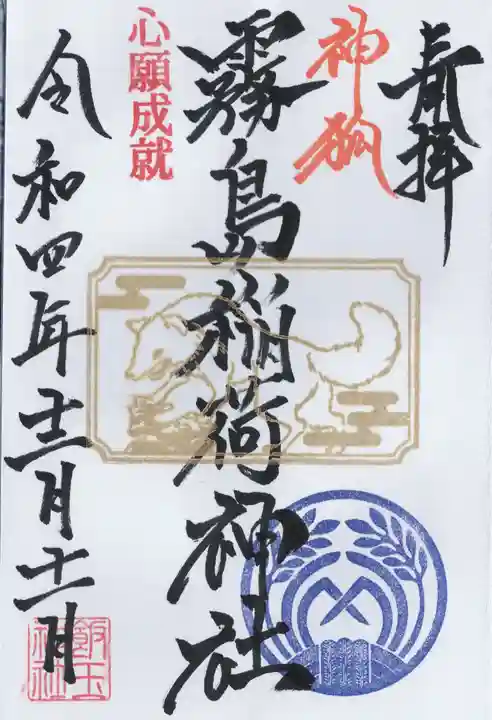 奉拝
神狐
霧島稲荷神社
心願成就
令和四年十二月十一日
飯玉
神社